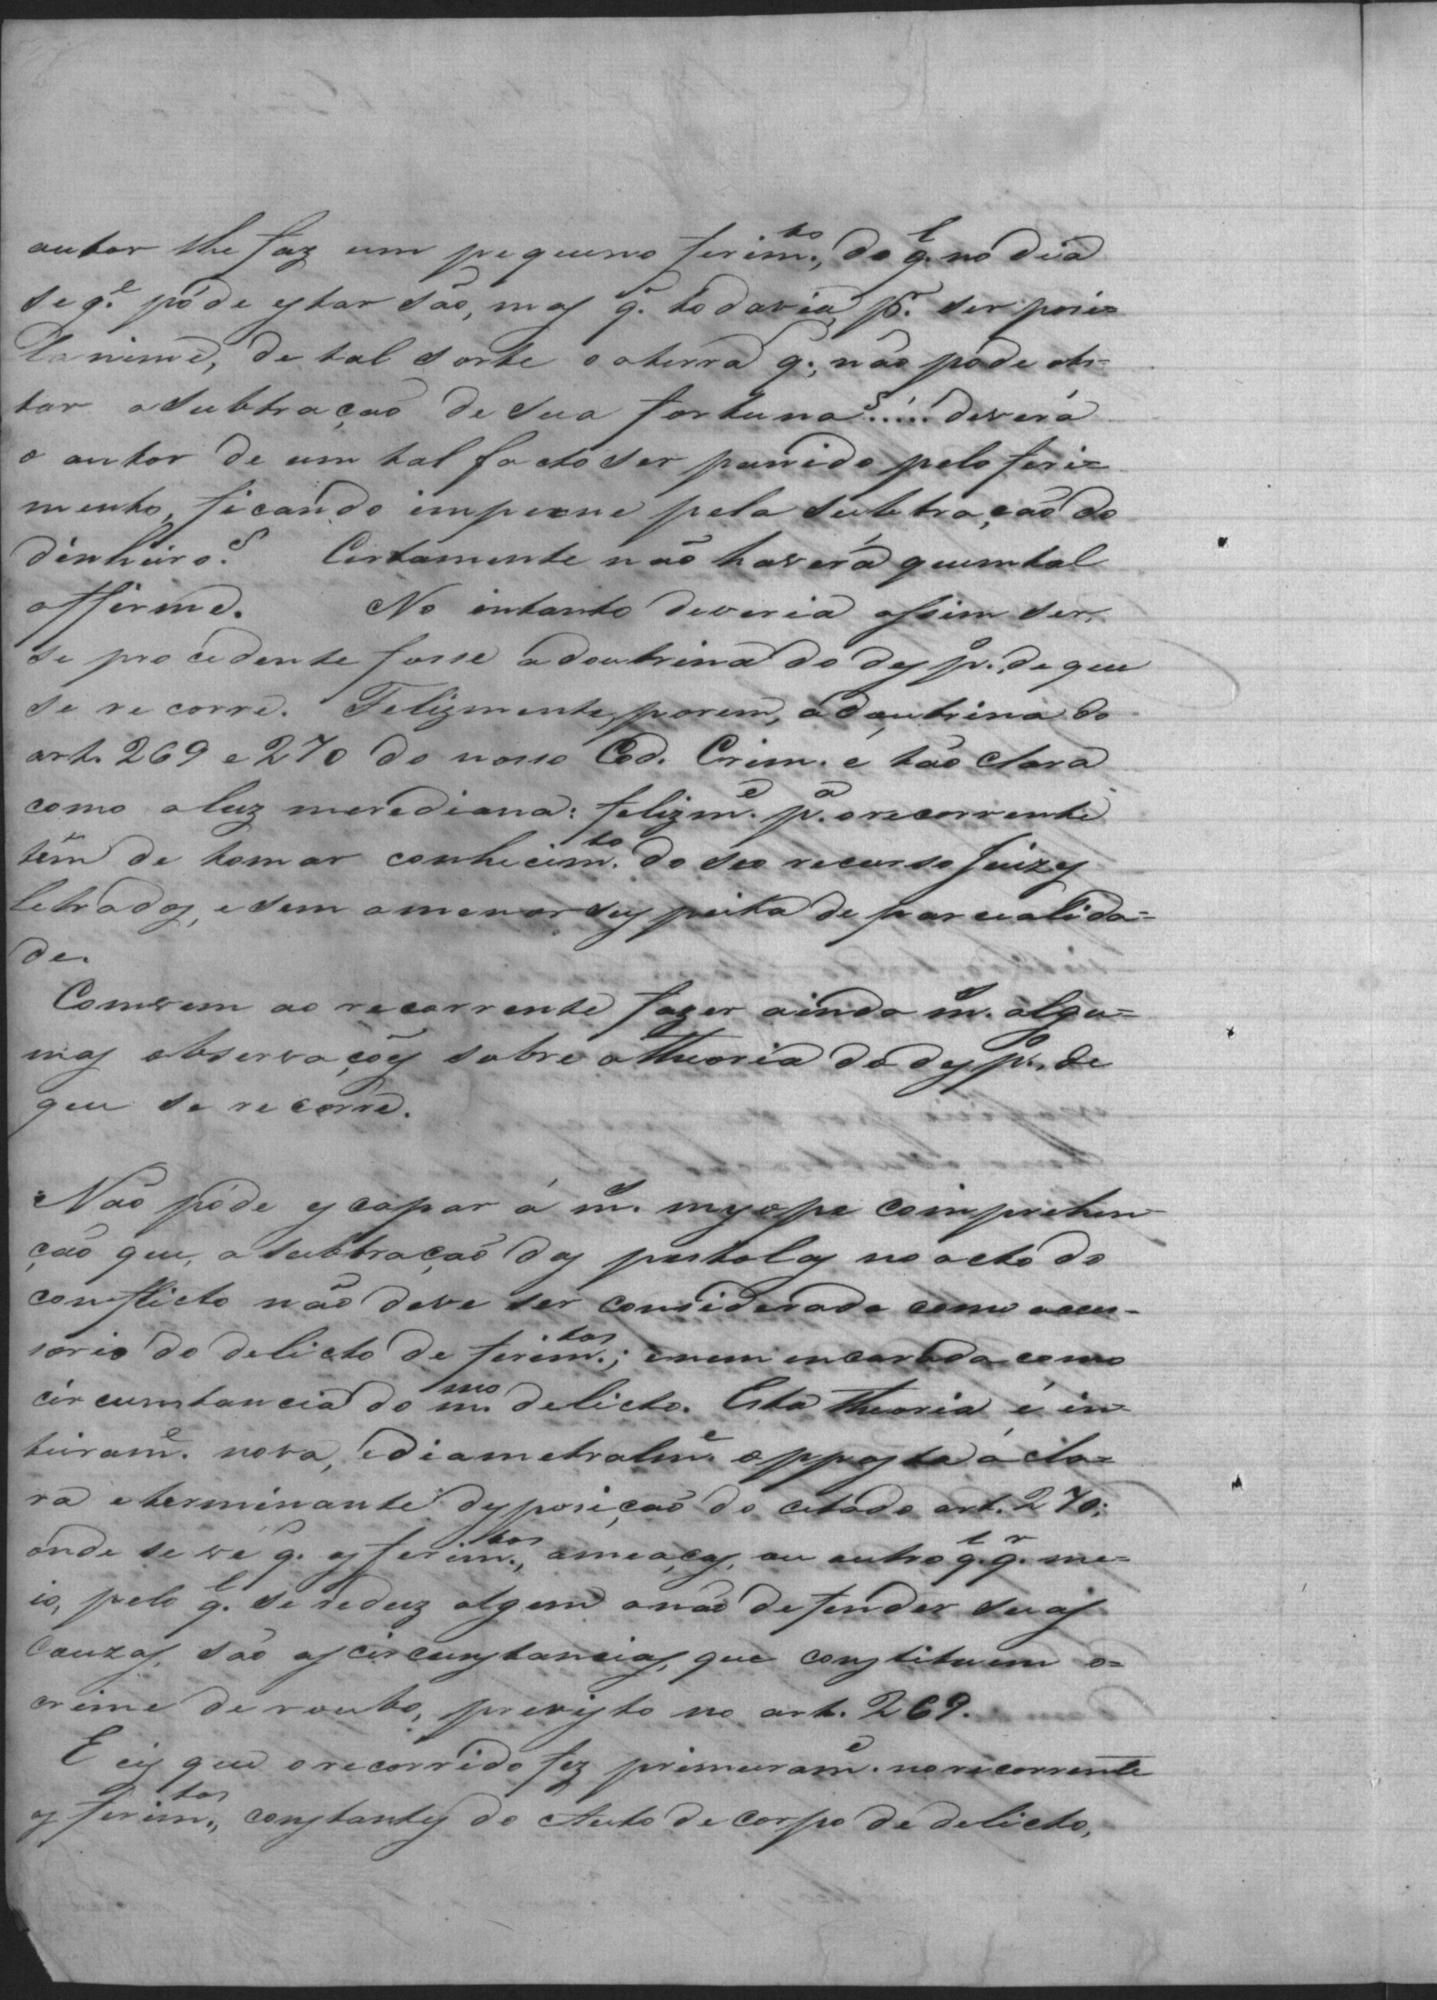 autor lhe faz um pequeno ferim.to, do q.l no dia
seg.e póde estar são, mas q.' todavia, p.r ser posi=
lanime, de tal sorte o aterra q.', não pode obs=
tar a subtração de sua fortuna?..... deverá
o autor de um tal facto ser punido pelo feri=
mento, ficando impune pela subtração do
dinheiro? Certamente não haverá quem tal
affirme. No intanto deveria assim ser,
se procedente fosse a doutrina do desp.o, de que
se recorre. Felizmente, porem, a doutrina do
art. 269 e 270 do nosso Cod. Crim. é tão clara
como a luz merediana: felizm.e p.a o recorrente
têm de tomar conhecim.to do seo recurso Juizes
letrados, e sem a menor suspeita de parcealida=
de.
Convem ao recorrente fazer ainda m.s algu=
mas observações sobre a theoria do desp.o, de
que se recorre.
Não póde escapar á m.s myope comprehen
ção que, a subtração das pistolas no acto do
conflicto não deve ser considerada como acces-
sorio do delicto de ferim.tos; e nem encarada como
circumstancia do m.mo delicto. Esta theoria é in=
teiram.e nova, e diametralm.e opposta á cla=
ra e terminante disposição do citado art. 270;
onde se vê q.' os ferim.tos, ameaças, ou outro q.l q.r me=
io, pelo q.l se reduz algem a não defender suas
cauzas, são as circunstancias, que constituem o=
crime de roubo, previsto no art. 269.
E eis que o recorrido fez primeiram.e no recorrente
os ferim.tos, constantes do Auto de corpo de delicto,